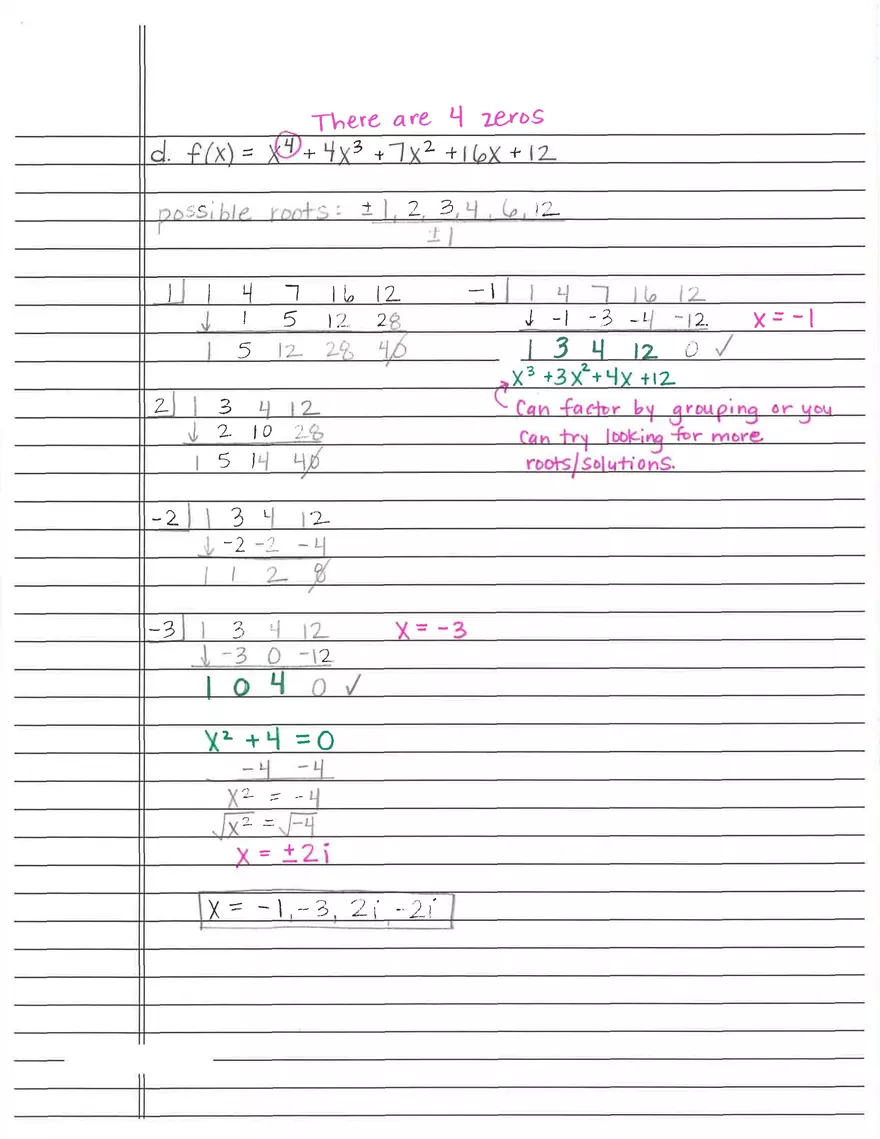 There are 4 zeros
d. f(x) = x⁴ + 4x³ + 7x² + 16x + 12
possible roots: ± 1, 2, 3, 4, 6, 12
±1
1| 1 4 7 16 12
↓ 1 5 12 28
1 5 12 28 40
-1| 1 4 7 16 12
↓ -1 -3 -4 -12. x = -1
1 3 4 12 0 ✓
x³ + 3x² + 4x + 12
Can factor by grouping or you
can try looking for more
roots/solutions.
2| 1 3 4 12
↓ 2 10 28
1 5 14 40
-2| 1 3 4 12
↓ -2 -2 -4
1 1 2 8
-3| 1 3 4 12 x = -3
↓ -3 0 -12
1 0 4 0 ✓
x² + 4 = 0
-4 -4
x² = -4
√x² = √-4
x = ±2i
x = -1, -3, 2i, -2i